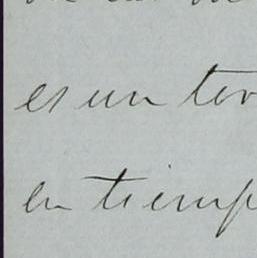 es un tor
en tiemp